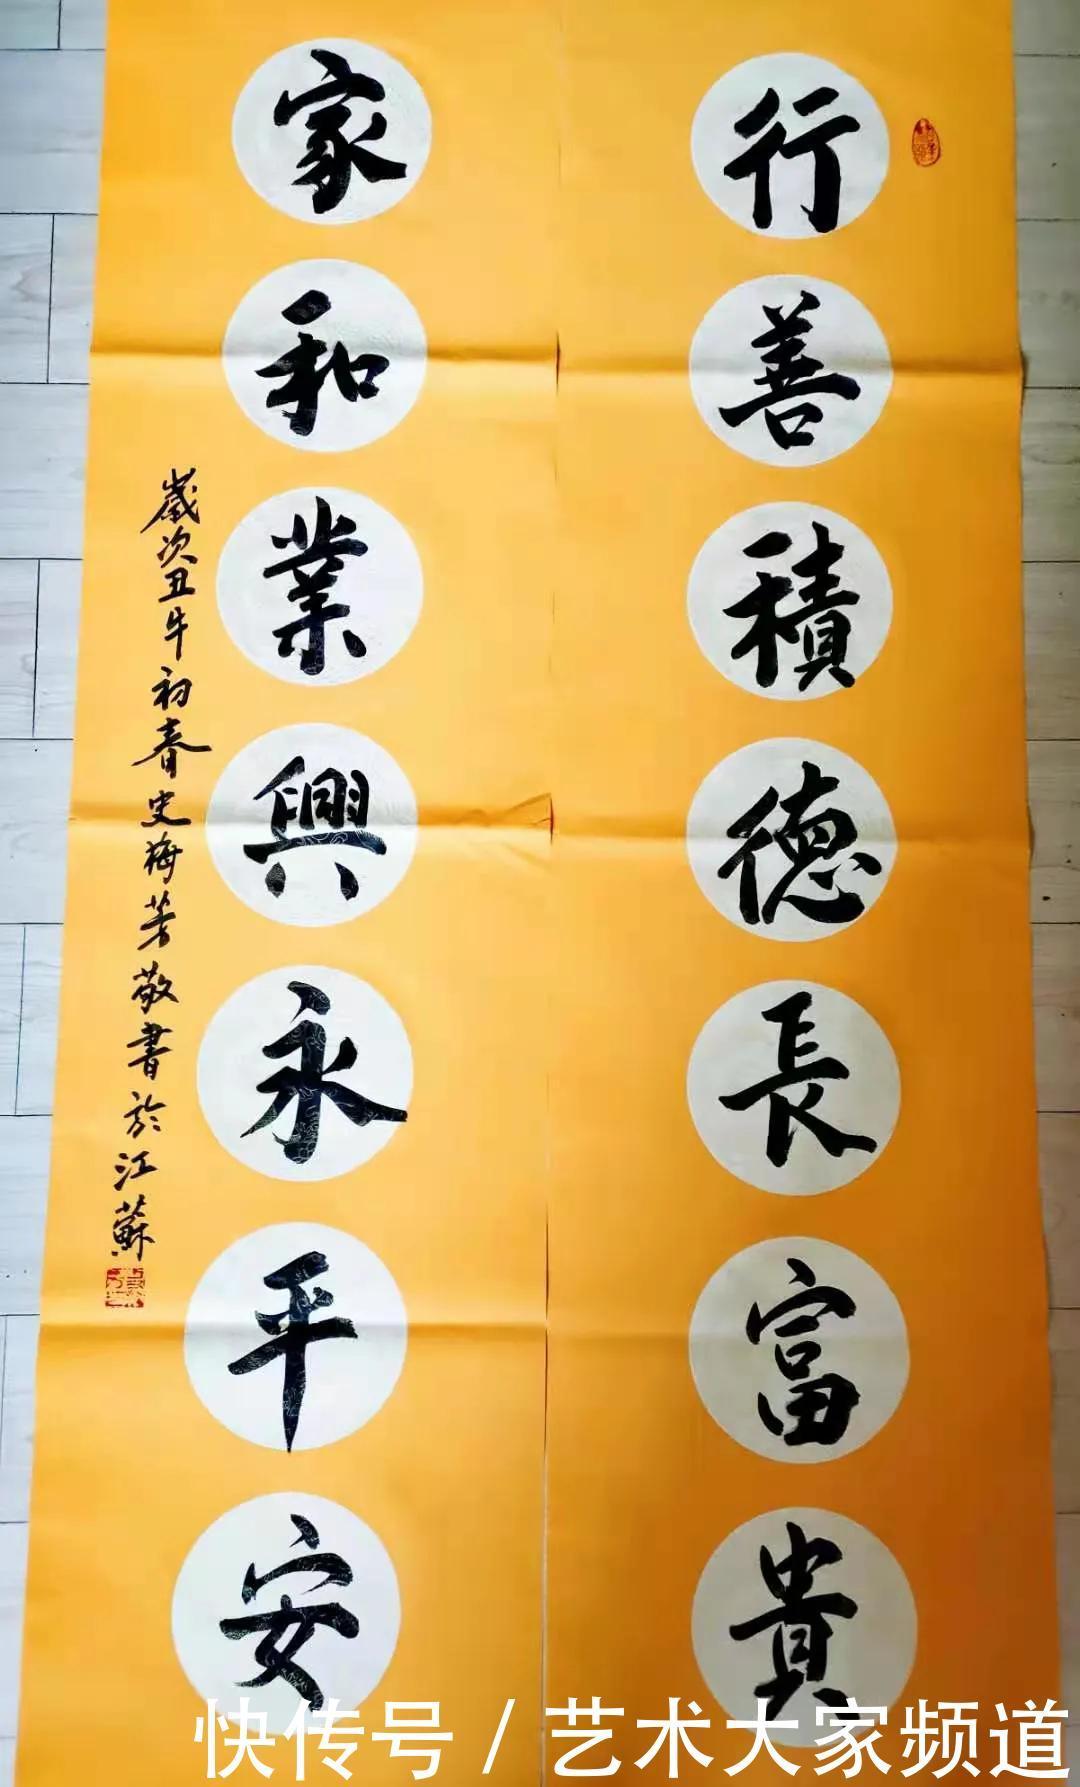 行善積德長富貴
家和業興永平安
歲次丑牛初春史梅芳敬書於江蘇
快传号 / 艺术大家频道